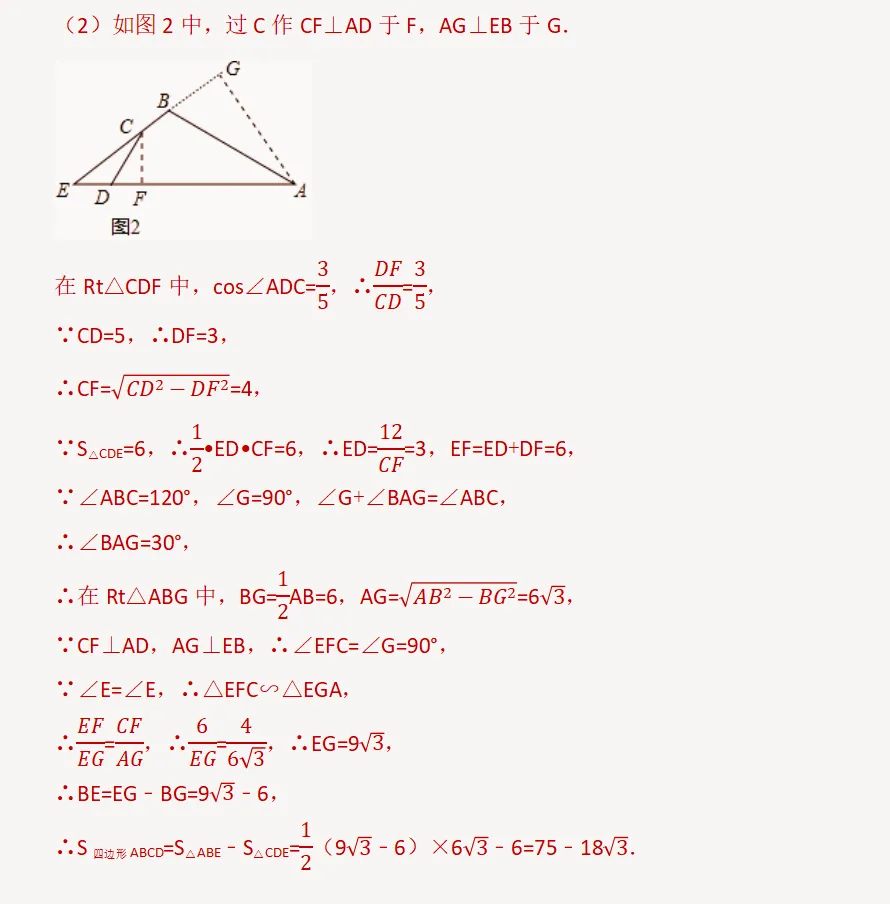 （2）如图 2 中，过 C 作 CF⊥AD 于 F，AG⊥EB 于 G．
G
B
C
E
D
F
A
图2
在 Rt△CDF 中，cos∠ADC=3/5，∴DF/CD=3/5，
∵CD=5，∴DF=3，
∴CF=√(CD²－DF²)=4，
∵S△CDE=6，∴1/2•ED•CF=6，∴ED=12/CF=3，EF=ED+DF=6，
∵∠ABC=120°，∠G=90°，∠G+∠BAG=∠ABC，
∴∠BAG=30°，
∴在 Rt△ABG 中，BG=1/2AB=6，AG=√(AB²－BG²)=6√3，
∵CF⊥AD，AG⊥EB，∴∠EFC=∠G=90°，
∵∠E=∠E，∴△EFC∽△EGA，
∴EF/EG=CF/AG，∴6/EG=4/(6√3)，∴EG=9√3，
∴BE=EG﹣BG=9√3﹣6，
∴S 四边形 ABCD=S△ABE﹣S△CDE=1/2（9√3﹣6）×6√3﹣6=75﹣18√3．